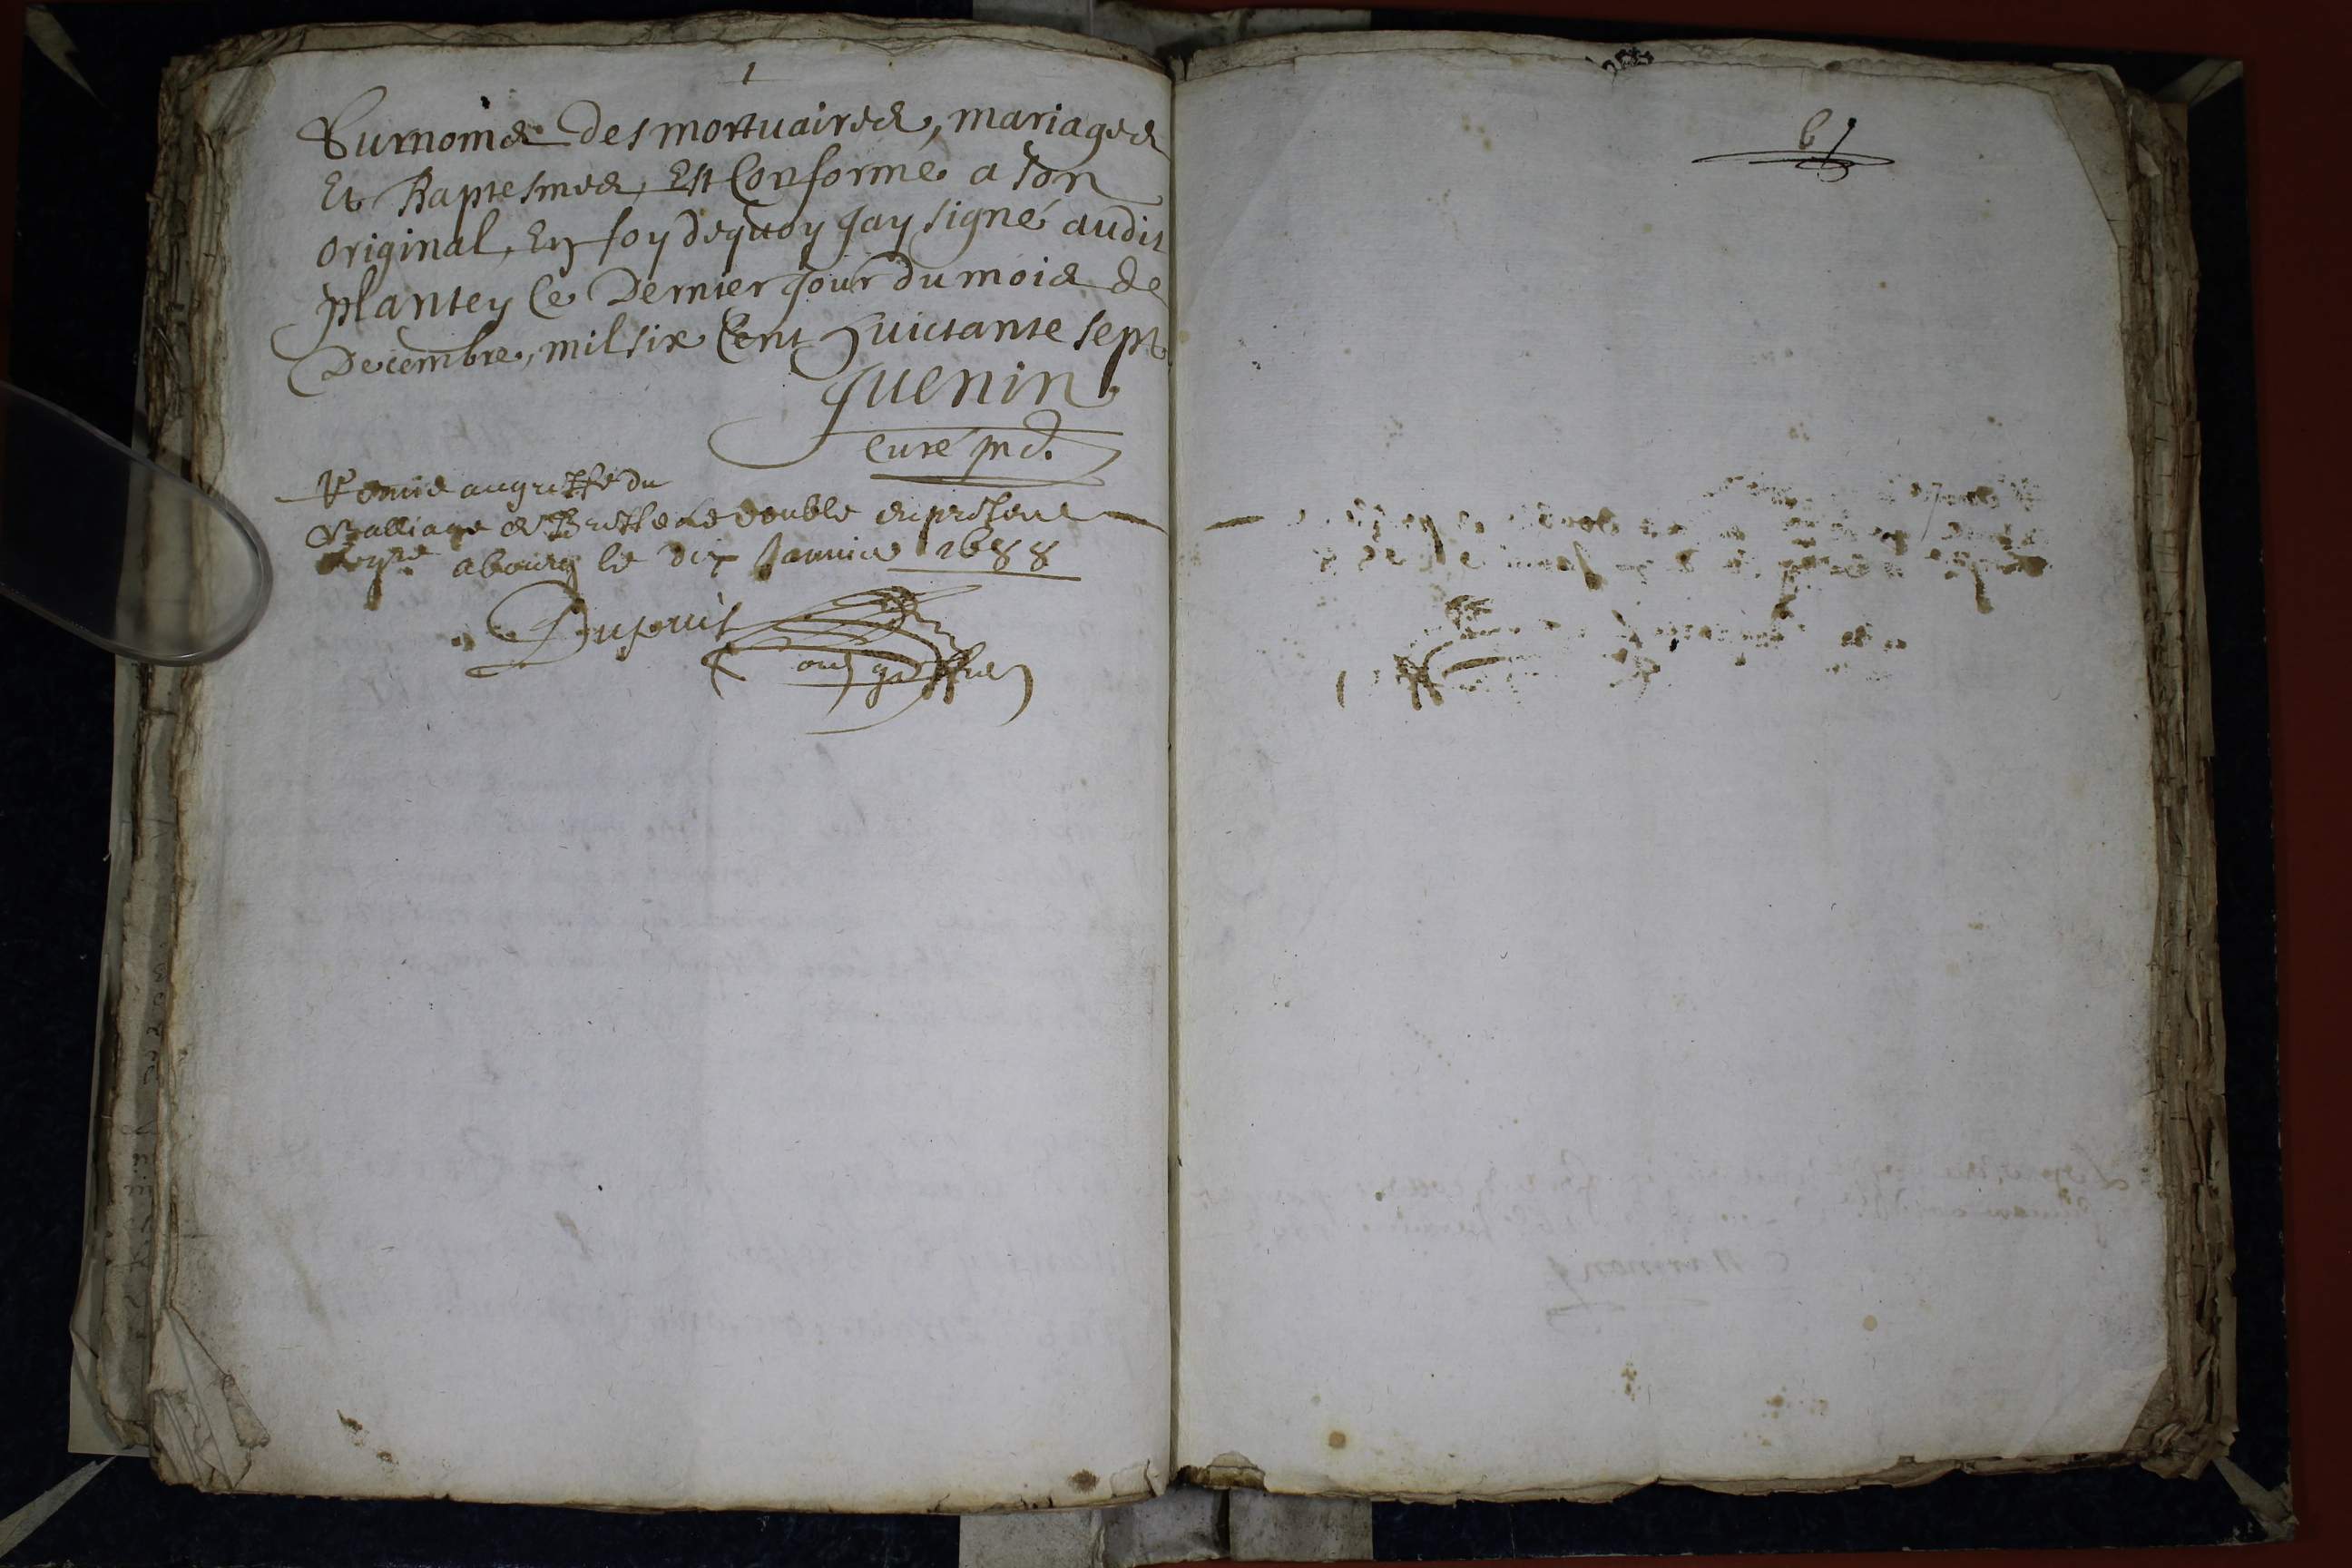 1
Surnoms des mortuaires, mariages
Et Baptesmes, Est Conforme a son
original, En foy dequoy Jay signé audit
plantey Ce Dernier Jour du mois de
Decembre, mil six Cent huictante sept
Guenin
Curé
Remis au greffe du
Balliage de Bresse le double du present
Regre a bourg le dix Janvier 1688
Dupuis
greffier